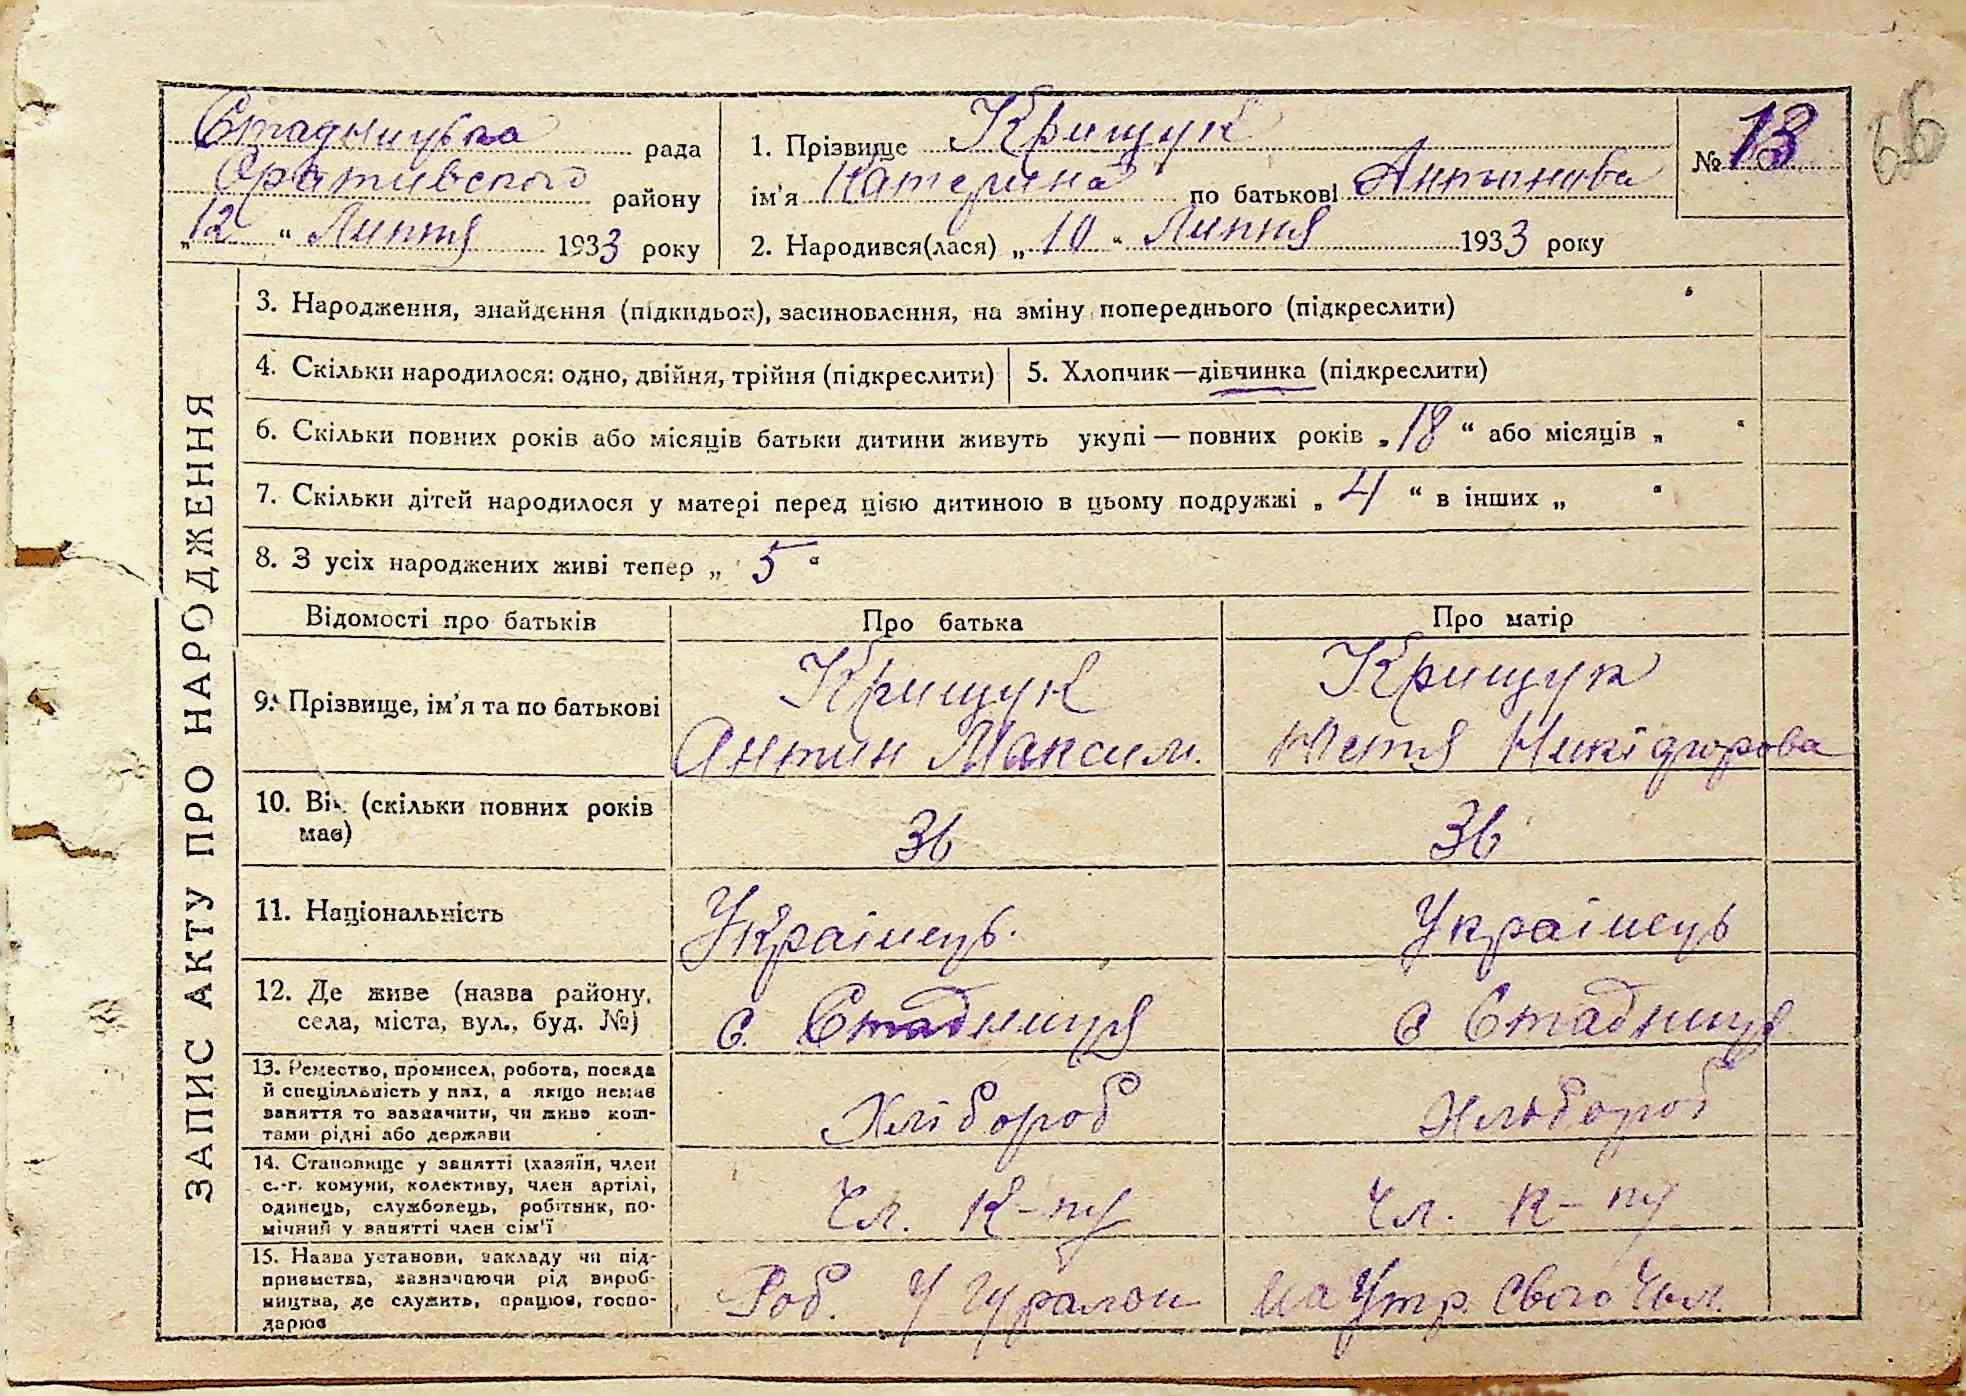 Стадницька рада
Оратівського району
„12“ Липня 1933 року
1. Прізвище Крищук
ім'я Катерина по батькові Антонова
2. Народився(лася) „10“ Липня 1933 року
№ 13
66
ЗАПИС АКТУ ПРО НАРОДЖЕННЯ
3. Народження, знайдення (підкидьок), засиновлення, на зміну попереднього (підкреслити)
4. Скільки народилося: одно, двійня, трійня (підкреслити)
5. Хлопчик—дівчинка (підкреслити)
6. Скільки повних років або місяців батьки дитини живуть укупі — повних років „18“ або місяців „ “
7. Скільки дітей народилося у матері перед цією дитиною в цьому подружжі „4“ в інших „ “
8. З усіх народжених живі тепер „5“
Відомості про батьків
Про батька
Про матір
9. Прізвище, ім'я та по батькові
Крищук
Антин Максим.
Крищук
Никідфорова
10. Вік (скільки повних років
має)
36
36
11. Національність
Українець.
Українець
12. Де живе (назва району,
села, міста, вул., буд. №)
с. Стадниця
с Стадниця
13. Ремество, промисел, робота, посада
й спеціяльність у них, а якщо немає
заняття то зазначити, чи живе кош-
тами рідні або держави
Хлібороб
Хлібороб
14. Становище у занятті (хазяїн, член
с.-г. комуни, колективу, член артілі,
одинець, службовець, робітник, по-
мічний у занятті член сім'ї
Чл. к-пу
Чл. к-пу
15. Назва установи, закладу чи під-
приємства, зазначаючи рід вироб-
ництва, де служить, працює, госпо-
дарює
Роб. у
на Утр. свого Чол.